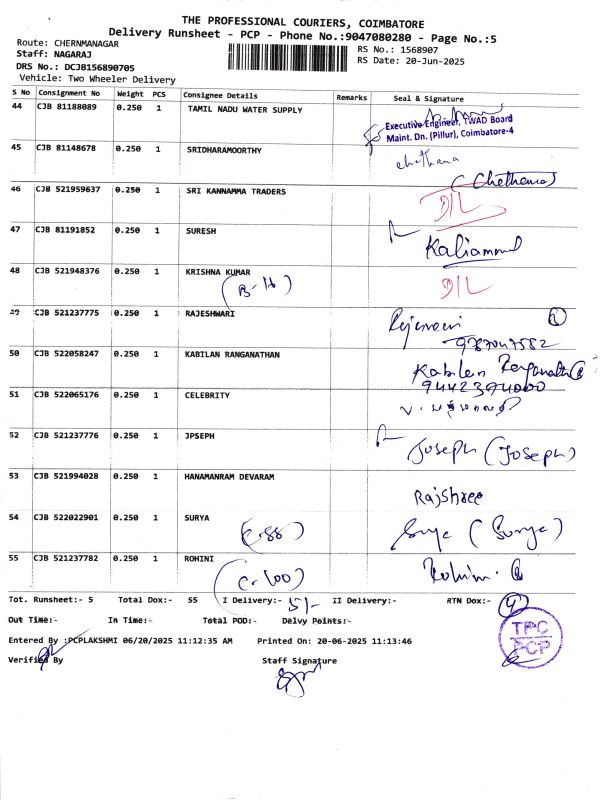 THE PROFESSIONAL COURIERS, COIMBATORE
Delivery Runsheet - PCP - Phone No.:9047080280 - Page No.:5
Route: CHERNMANAGAR
Staff: NAGARAJ
DRS No.: DCJB156890705
Vehicle: Two Wheeler Delivery
RS No.: 1568907
RS Date: 20-Jun-2025
S No Consignment No Weight PCS Consignee Details Remarks Seal & Signature
44 CJB 81188089 0.250 1 TAMIL NADU WATER SUPPLY
Executive Engineer, TWAD Board
Maint. Dn. (Pillur), Coimbatore-4
45 CJB 81148678 0.250 1 SRIDHARAMOORTHY
chethana
(Chethana)
46 CJB 521959637 0.250 1 SRI KANNAMMA TRADERS D/L
47 CJB 81191852 0.250 1 SURESH
Kaliammal
48 CJB 521948376 0.250 1 KRISHNA KUMAR D/L
49 CJB 521237775 0.250 1 RAJESHWARI
50 CJB 522058247 0.250 1 KABILAN RANGANATHAN
Kabilan
51 CJB 522065176 0.250 1 CELEBRITY
52 CJB 521237776 0.250 1 JPSEPH
Joseph (Joseph)
53 CJB 521994028 0.250 1 HANAMANRAM DEVARAM
Rajshree
54 CJB 522022901 0.250 1 SURYA
Surya (Surya)
55 CJB 521237782 0.250 1 ROHINI
(C-100)
Rohini
Tot. Runsheet:- 5 Total Dox:- 55 I Delivery:- 51- II Delivery:- RTN Dox:- 4
Out Time:- In Time:- Total POD:- Delvy Points:-
Entered By :PCPLAKSHMI 06/20/2025 11:12:35 AM Printed On: 20-06-2025 11:13:46
Verified By Staff Signature
TPC
PCP